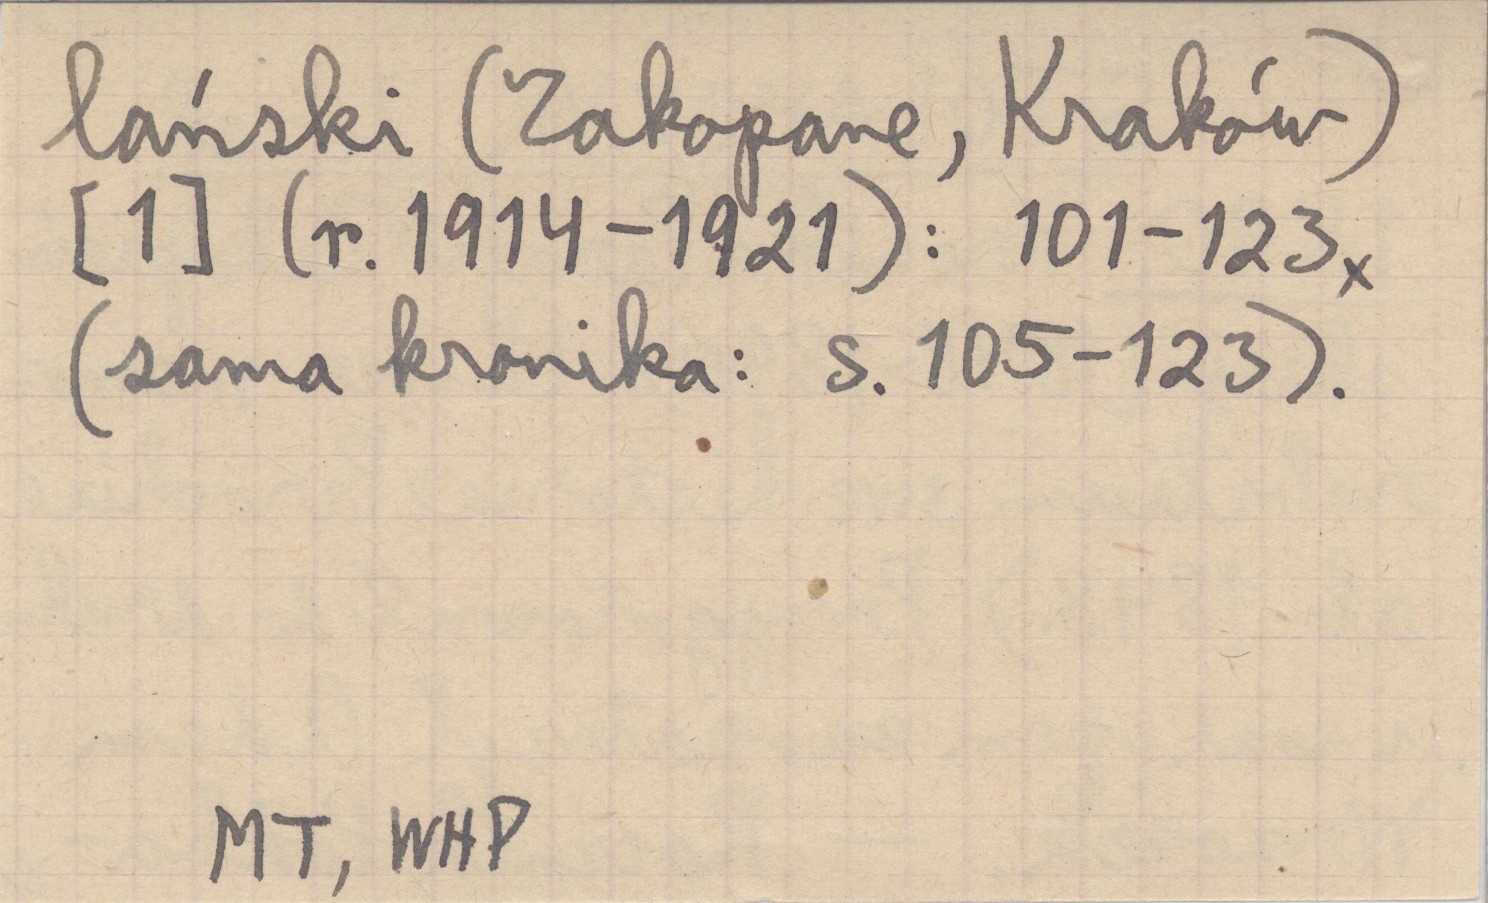 lański (Zakopane, Kraków)
[1] (r. 1914-1921): 101-123x
(sama kronika: s. 105-123).
MT, WHP